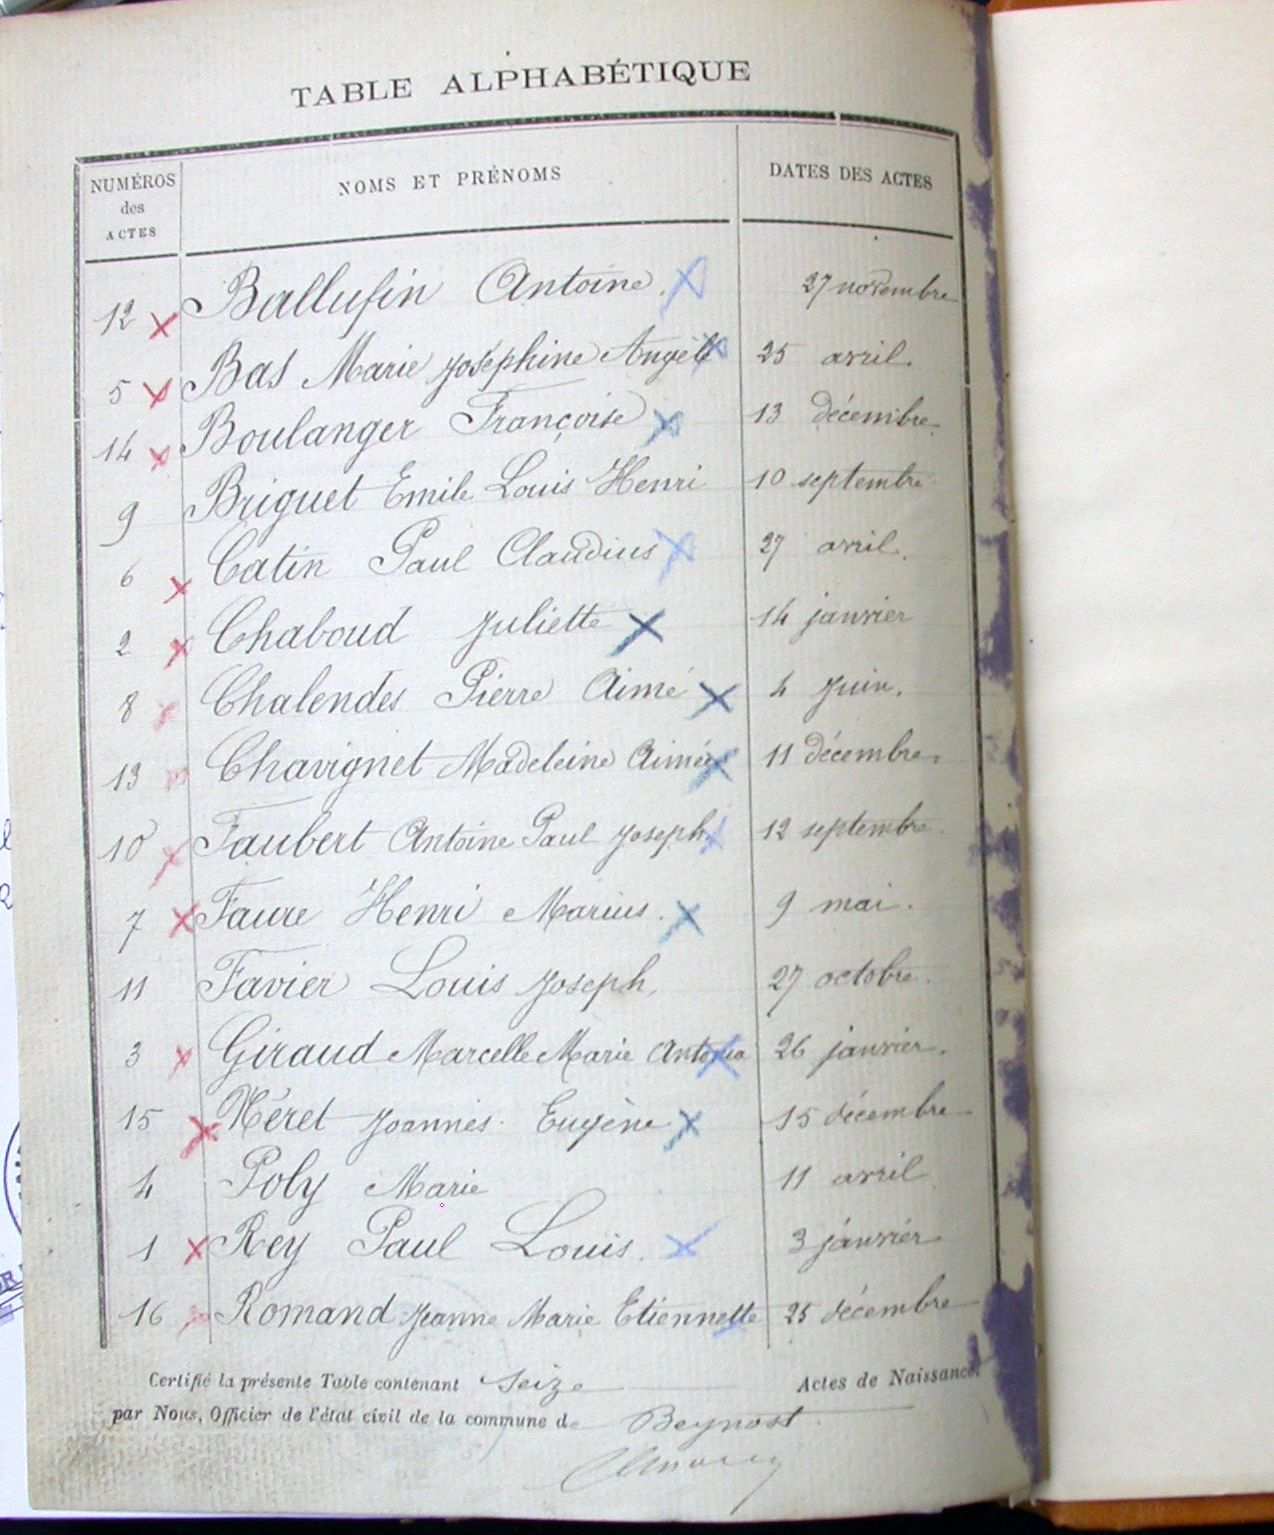 TABLE ALPHABÉTIQUE
NUMÉROS des ACTES NOMS ET PRÉNOMS DATES DES ACTES
12 Ballufin Antoine 27 novembre
5 Bas Marie Joséphine Angèle 25 avril.
14 Boulanger Françoise 13 décembre
9 Briguet Emile Louis Henri 10 septembre
6 Catin Paul Claudius 27 avril.
2 Chaboud Juliette 14 janvier
8 Chalendes Pierre Aimé 4 Juin.
13 Chavignet Madeleine Aimée 11 décembre.
10 Faubert Antoine Paul Joseph 12 septembre.
7 Faure Henri Marius. 9 mai.
11 Favier Louis Joseph, 27 octobre.
3 Giraud Marcelle Marie Antonia 26 janvier.
15 Néret Joannès Eugène 15 décembre
4 Poly Marie 11 avril
1 Rey Paul Louis. 3 janvier
16 Romand Jeanne Marie Etiennette 25 décembre
Certifié la présente Table contenant Seize Actes de Naissance,
par Nous, Officier de l'état civil de la commune de Beynost.